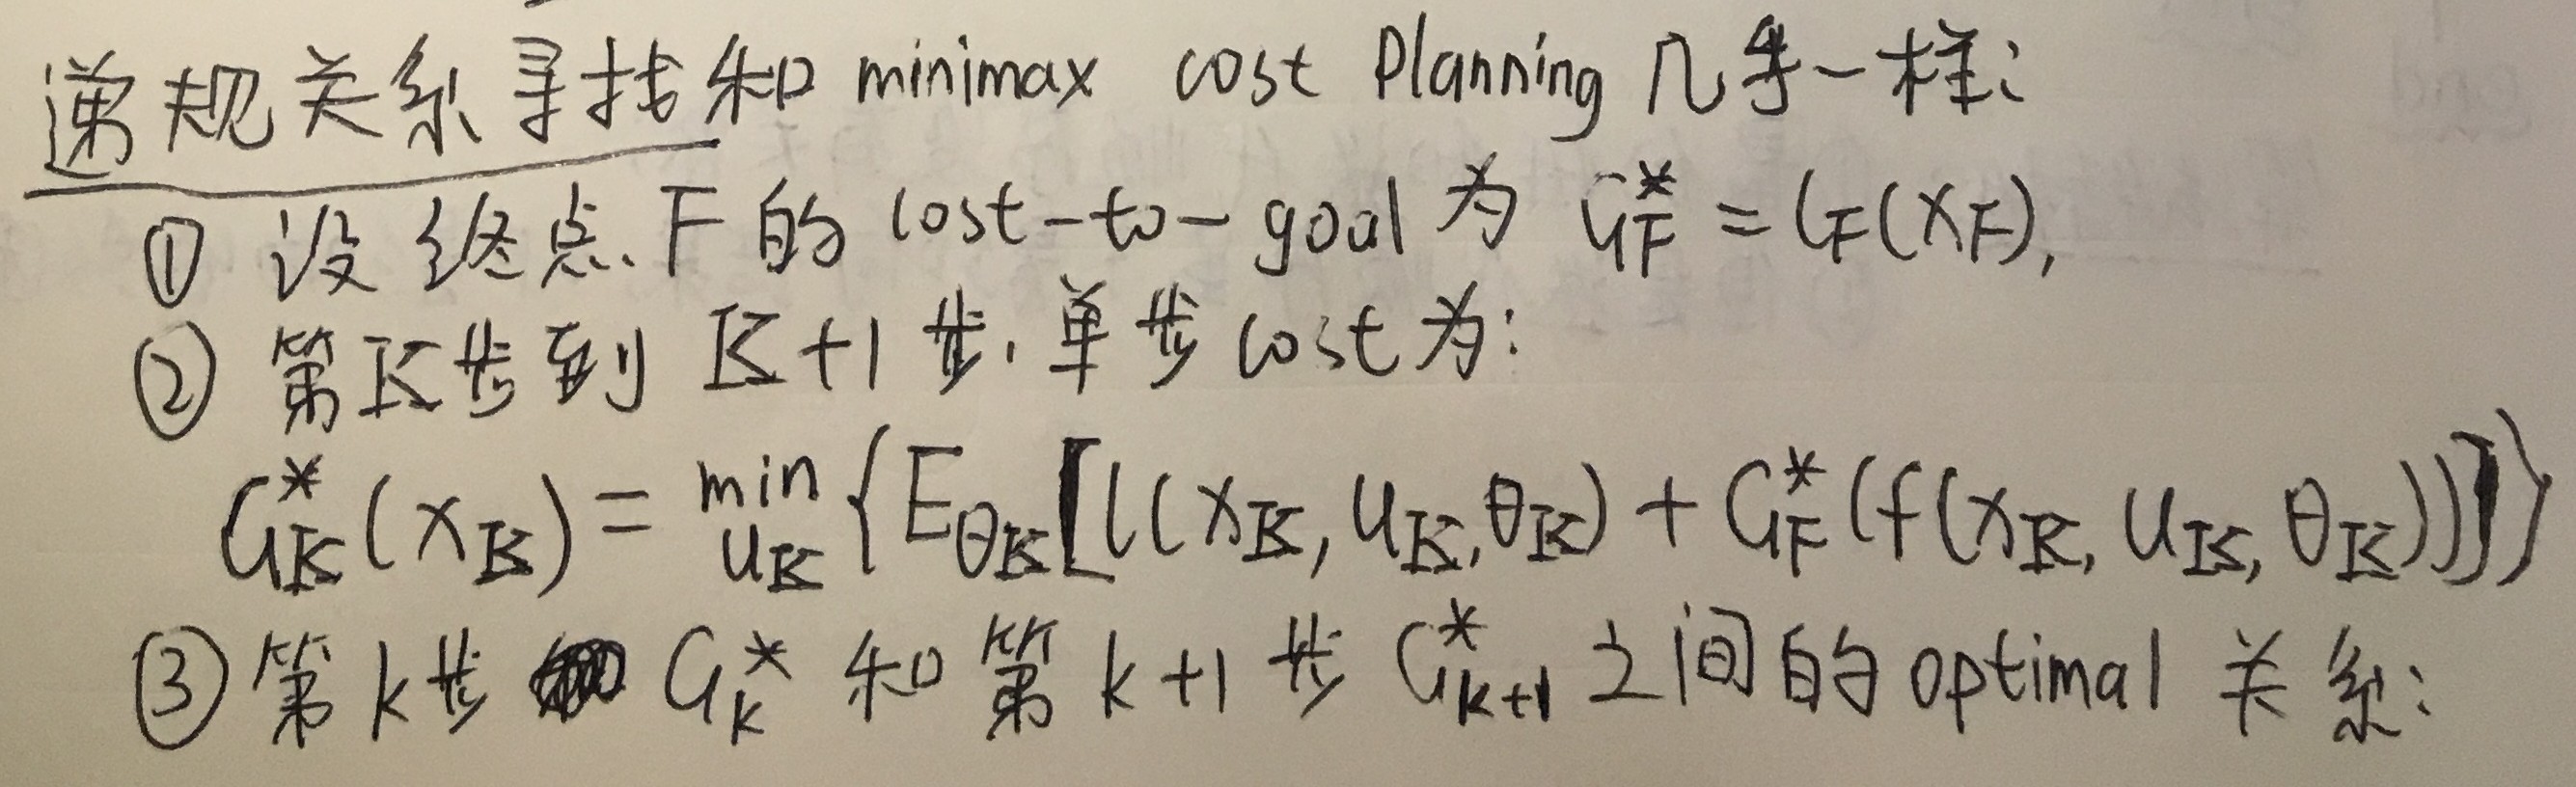 递规关系寻找和 minimax cost Planning 几乎一样:
① 设终点 F 的 cost-to-goal 为 G*_F = l_F(x_F),
② 第K步到 K+1 步,单步cost为:
G*_K(x_K) = min_{u_K} {E_{θ_K}[l(x_K, u_K, θ_K) + G*_F(f(x_K, u_K, θ_K))]}
③ 第k步 G*_k 和第 k+1 步 G*_{k+1} 之间的 optimal 关系: